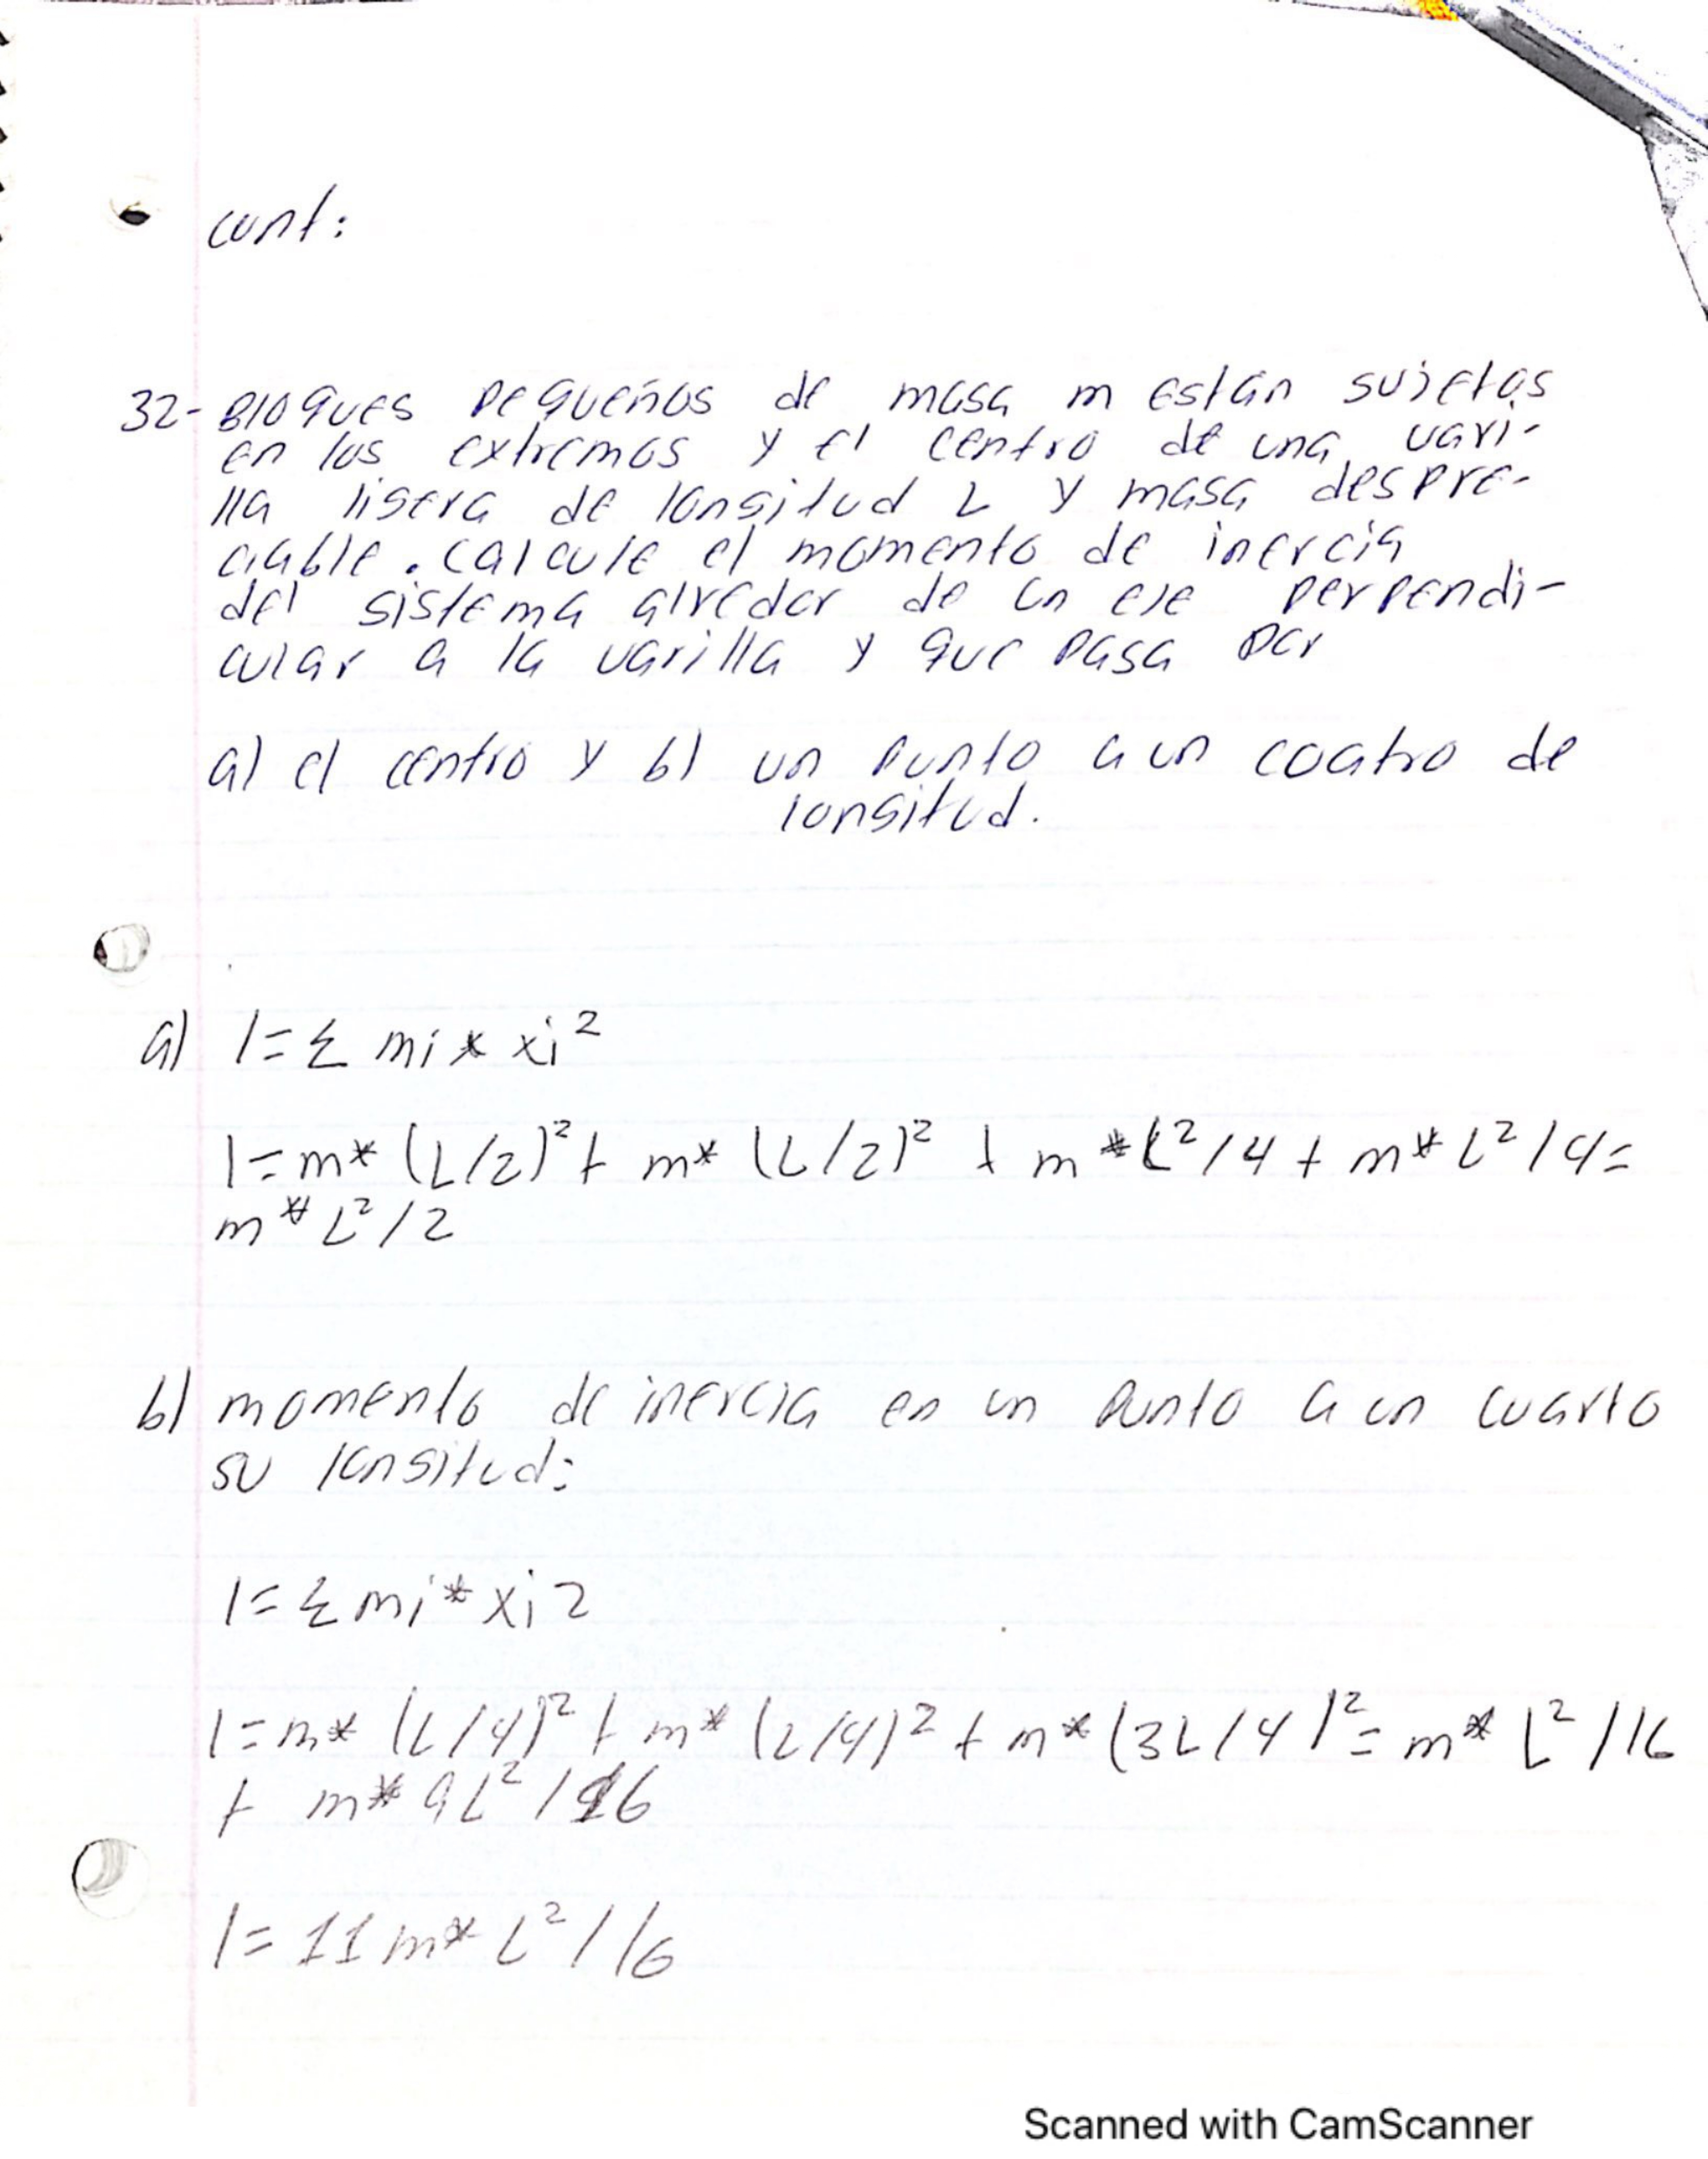 cont:
32- Bloques pequeños de masa m están sujetos
en los extremos y el centro de una vari-
lla ligera de longitud L y masa despre-
ciable. calcule el momento de inercia
del sistema alrededor de un eje perpendi-
cular a la varilla y que pasa por
a) el centro y b) un punto a un coatro de
longitud.
a) I = Σ mi * xi²
I = m* (L/2)² + m* (L/2)² + m * L²/4 + m * L²/4 =
m * L²/2
b) momento de inercia en un punto a un cuarto
su longitud:
I = Σ mi * xi 2
I = m* (L/4)² + m* (L/4)² + m* (3L/4)² = m* L²/16
+ m* 9L²/16
I = 11 m* L²/16
Scanned with CamScanner